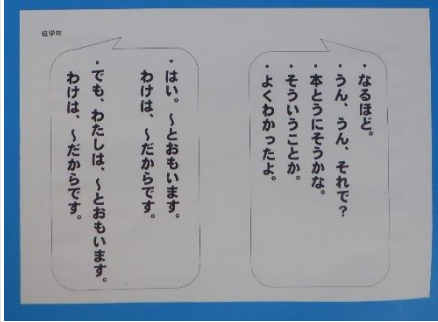 低学年
・なるほど。
・うん、うん、それで？
・本とうにそうかな。
・そういうことか。
・よくわかったよ。
・はい。～とおもいます。
わけは、～だからです。
・でも、わたしは、～とおもいます。
わけは、～だからです。